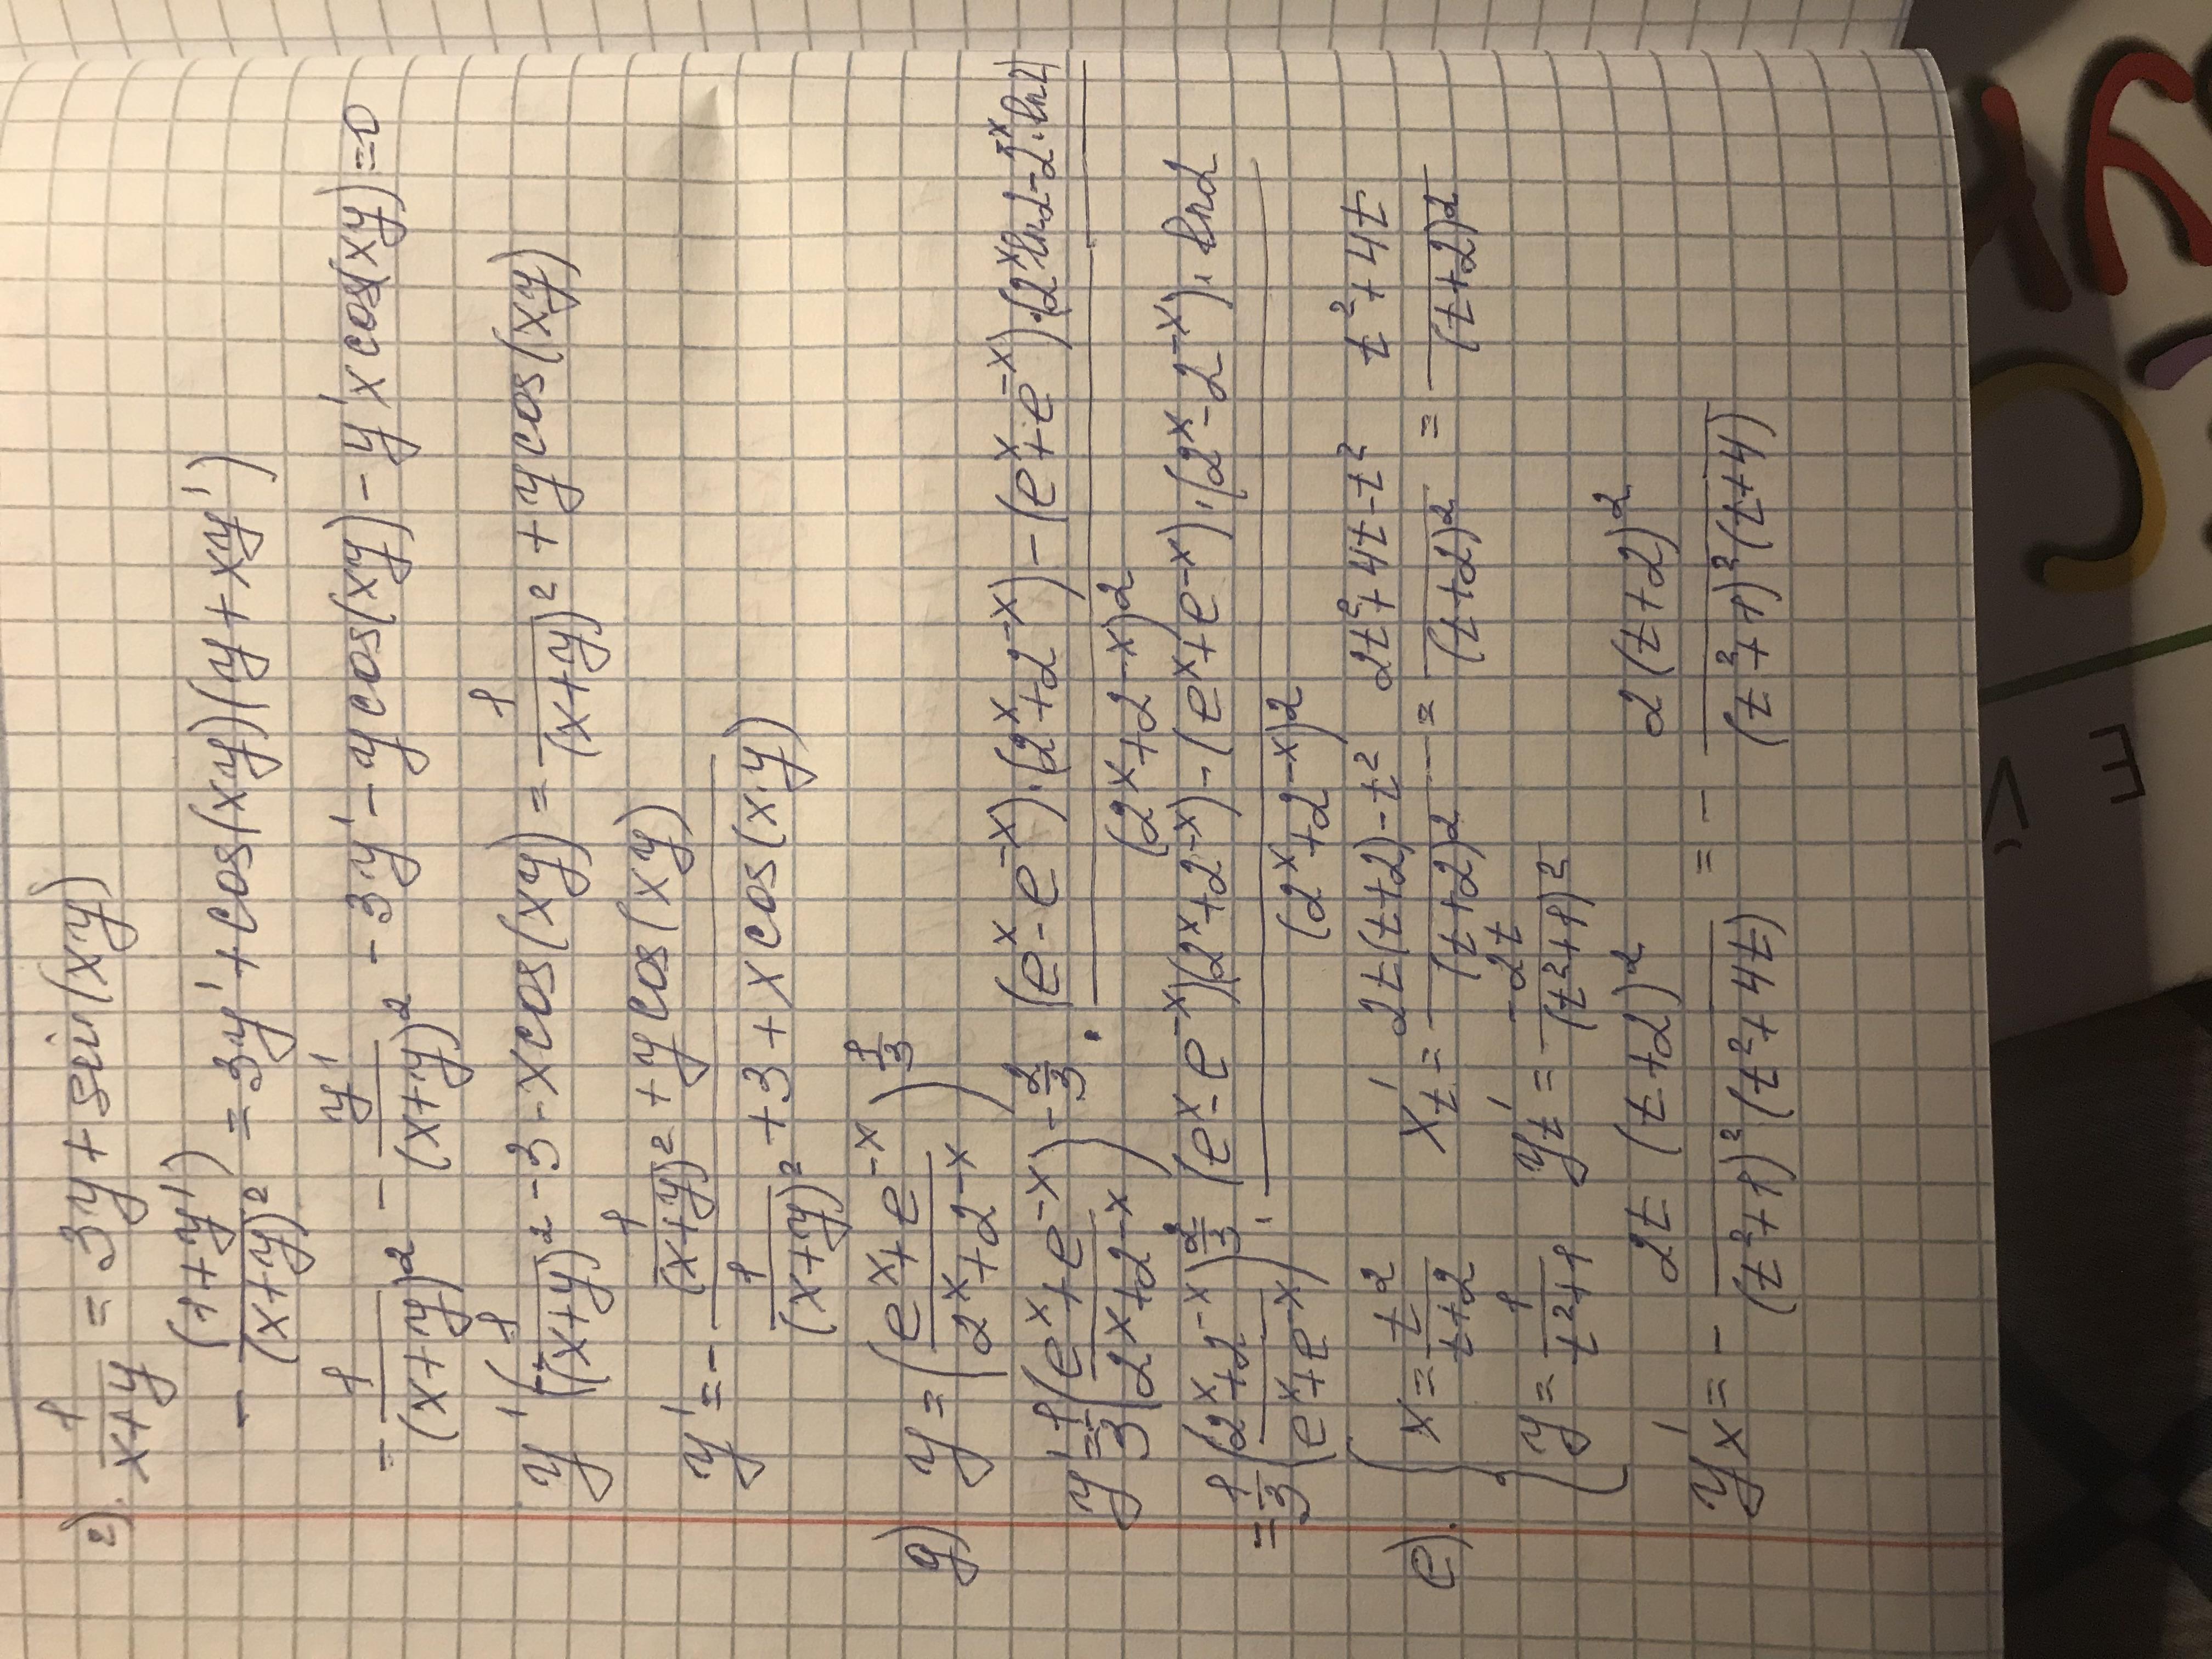 г). 1/(x+y) = 3y + sin(xy)
- (1+y')/(x+y)² = 3y' + cos(xy)(y + xy')
= 1/(x+y)² - y'/(x+y)² - 3y' - y cos(xy) - y'x cos(xy) = 0
y'(-1/(x+y)² - 3 - x cos(xy)) = 1/(x+y)² + y cos(xy)
y' = - (1/(x+y)² + y cos(xy))/(1/(x+y)² + 3 + x cos(x·y))
g) y = ((e^x + e^-x)/(2^x + 2^-x))^(1/3)
y' = 1/3 ((e^x + e^-x)/(2^x + 2^-x))^(-2/3) · ((e^x - e^-x)·(2^x + 2^-x) - (e^x + e^-x)·(2^x ln2 - 2^-x·ln2))/(2^x + 2^-x)²
= 1/3 ((2^x + 2^-x)/(e^x + e^-x))^(2/3) · ((e^x - e^-x)(2^x + 2^-x) - (e^x + e^-x)·(2^x - 2^-x)·ln2)/(2^x + 2^-x)²
e). { x = t²/(t+2) x't = (2t(t+2) - t²)/(t+2)² = (2t² + 4t - t²)/(t+2)² = (t² + 4t)/(t+2)²
y = 1/(t²+1) y't = -2t/(t²+1)²
y'x = - (2t · (t+2)²)/((t²+1)²(t²+4t)) = - (2(t+2)²)/((t²+1)²(t+4))